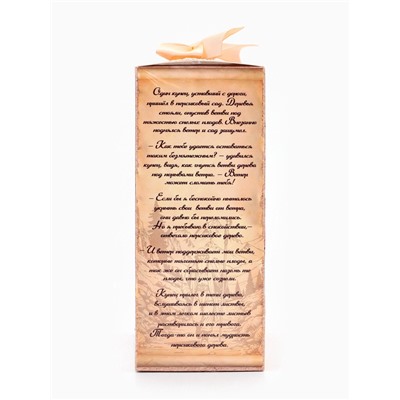 Один купец, уставший с дороги,
пришёл в персиковый сад. Деревья
стояли, опустив ветви под
тяжестью спелых плодов. Внезапно
поднялся ветер и сад зашумел.
– Как тебе удается оставаться
таким безмятежным? – удивился
купец, видя, как гнутся ветви дерева
под порывами ветра. – Ветер
может сломить тебя!
– Если бы я беспокойно пыталось
укрыть свои ветви от ветра,
они давно бы переломились.
Но я пребываю в спокойствии, –
отвечало персиковое дерево.
– И ветер поддерживает мои ветви,
которые наполняют спелые плоды, в
то же он сбрасывает наземь те
плоды, что уже созрели.
Купец прилег в тени дерева,
вслушиваясь в шепот листьев,
и в этом легком шелесте листьев
растворилась и его тревога.
Тогда-то он и понял мудрость
персикового дерева.